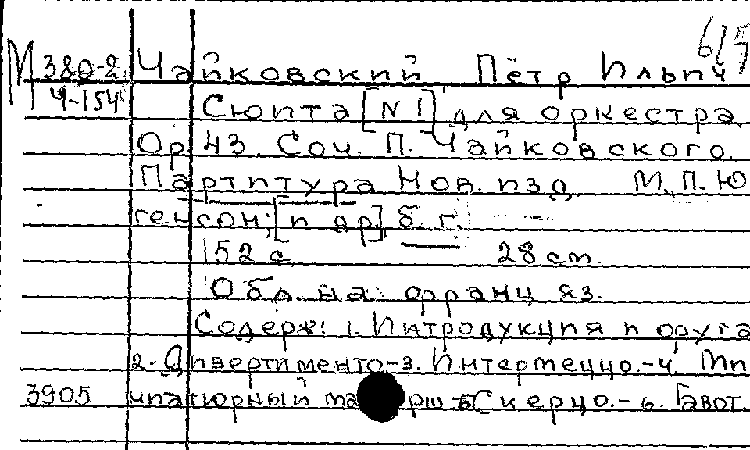 615
М 380-2 Чайковский Пётр Ильич
Ч-154 Сюита [N 1] для оркестра.
Op 43. Соч. П. Чайковского.
Партитура Нов. изд. М. П. Ю
генсон; [и др], б. г.
152 с 28 cm
Обл. на франц яз.
Содерж: 1. Интродукция и фуга
2. Дивертименто-3. Интермеццо.-4. Ми
3905 ниатюрный марш 5 Скерцо.-6. Гавот.